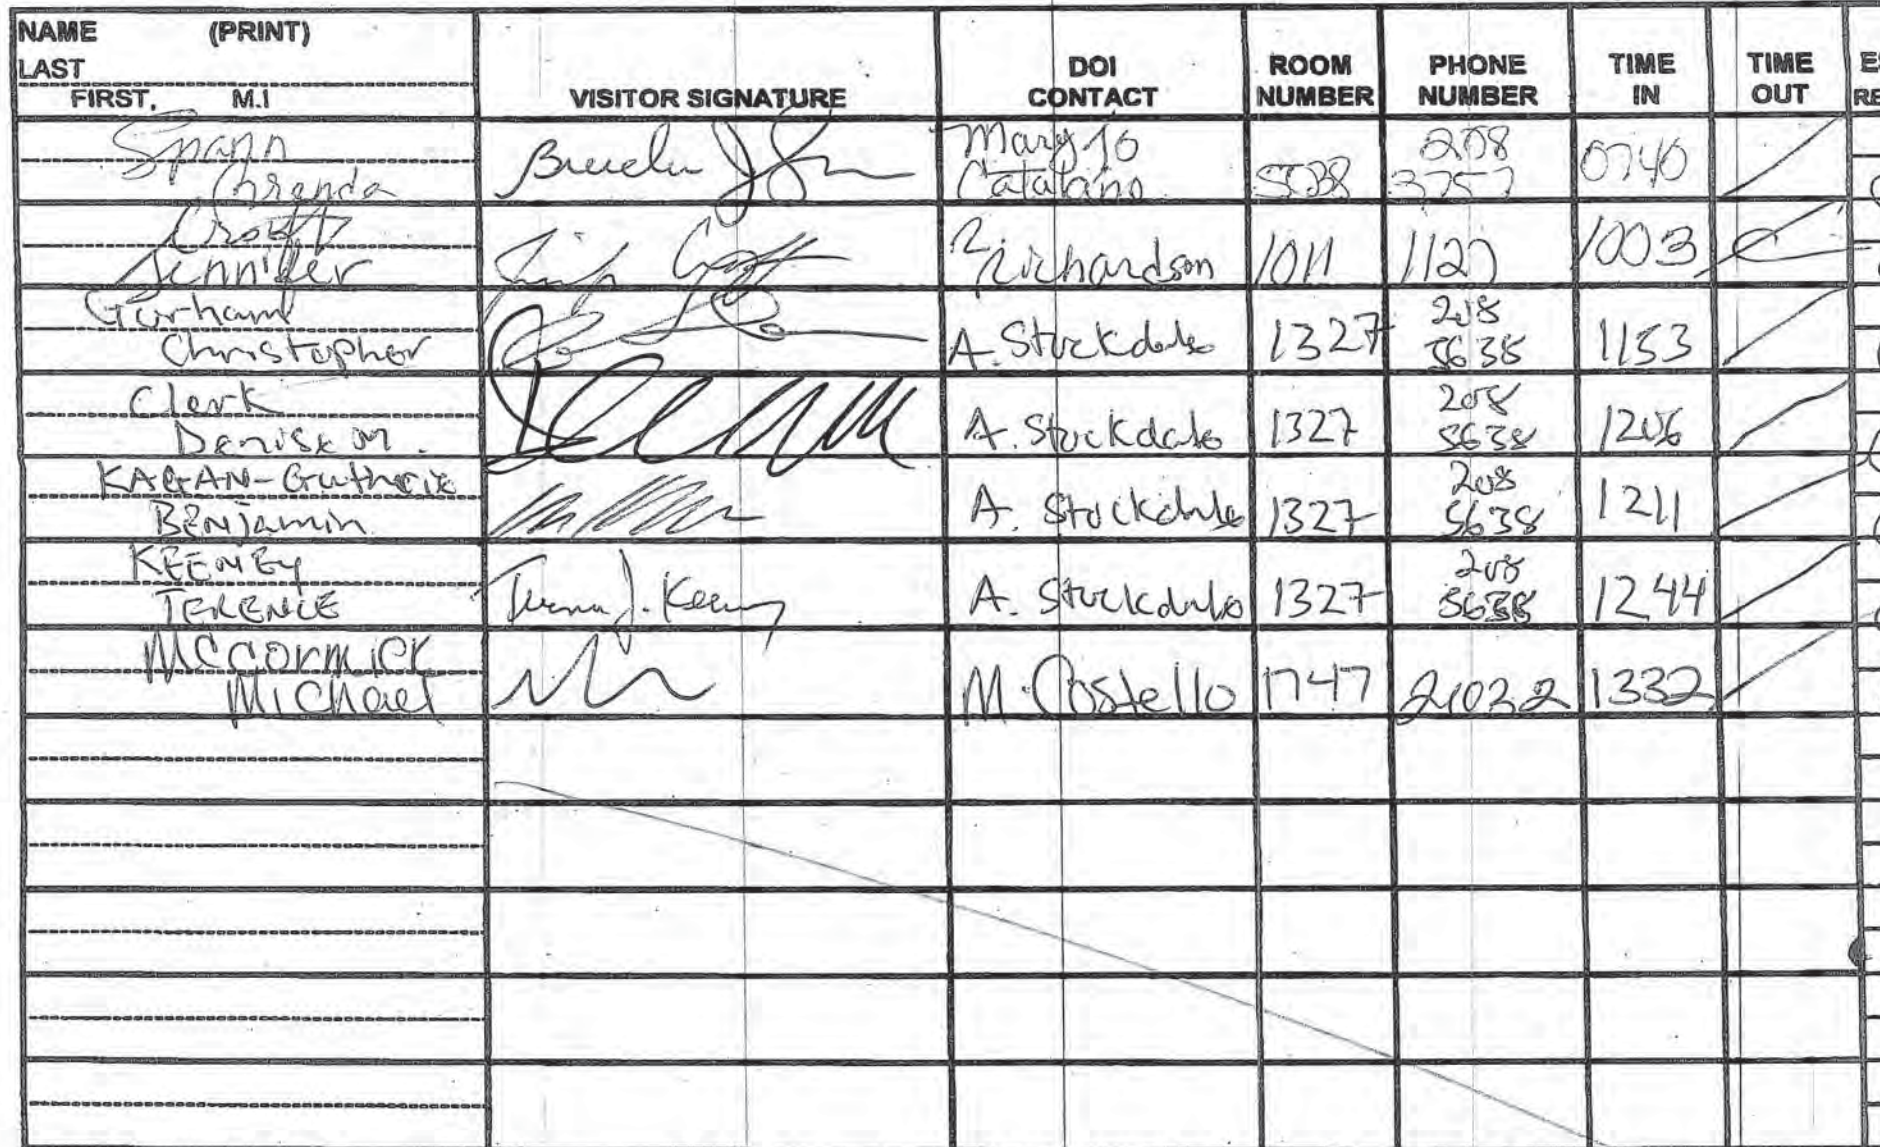 NAME (PRINT)
LAST
FIRST, M.I
VISITOR SIGNATURE
DOI
CONTACT
ROOM
NUMBER
PHONE
NUMBER
TIME
IN
TIME
OUT
Spann
Brenda
Mary Jo
Catalano
5038
208
3757
0740
Croft
Jennifer
Richardson
1011
1127
1003
Gorham
Christopher
A. Stockdale
1327
208
5638
1153
Clerk
Denise M.
A. Stockdale
1327
208
5638
1206
KAGAN-Guthrie
BENjamin
A. Stockdale
1327
208
5638
1211
KEENEY
TERENCE
J. Keeney
A. Stockdale
1327
208
5638
1244
McCORMICK
Michael
M. Costello
1747
1332